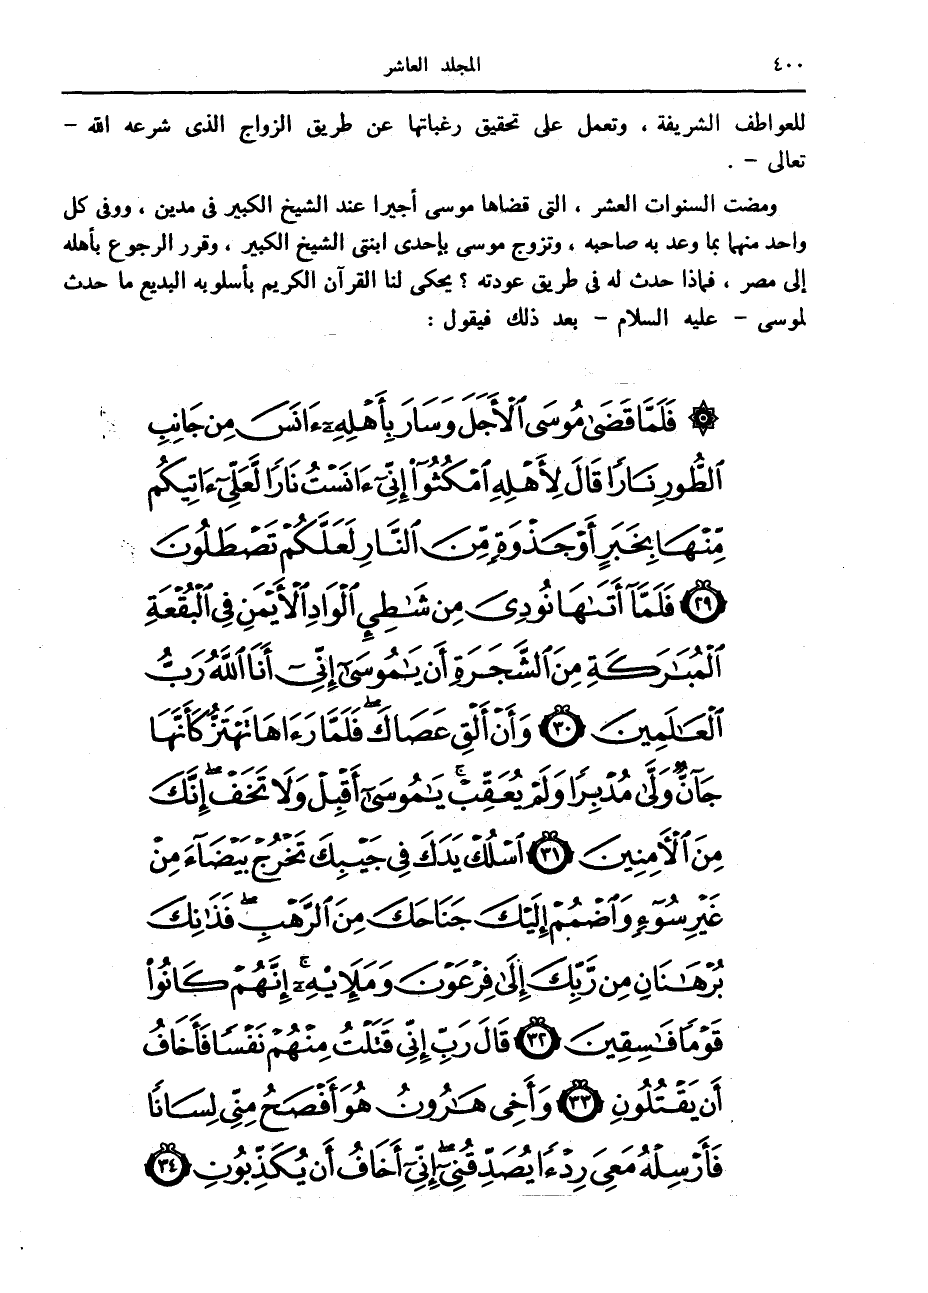 ٤٠٠ المجلد العاشر
للعواطف الشريفة ، وتعمل على تحقيق رغباتها عن طريق الزواج الذى شرعه الله –
تعالى – .
ومضت السنوات العشر ، التى قضاها موسى أجيرا عند الشيخ الكبير فى مدين ، ووفى كل
واحد منهما بما وعد به صاحبه ، وتزوج موسى بإحدى ابنتى الشيخ الكبير ، وقرر الرجوع بأهله
إلى مصر ، فماذا حدث له فى طريق عودته ؟ يحكى لنا القرآن الكريم بأسلوبه البديع ما حدث
لموسى – عليه السلام – بعد ذلك فيقول :
۞ فَلَمَّا قَضَىٰ مُوسَى ٱلْأَجَلَ وَسَارَ بِأَهْلِهِۦٓ ءَانَسَ مِن جَانِبِ
ٱلطُّورِ نَارًا قَالَ لِأَهْلِهِ ٱمْكُثُوٓا۟ إِنِّىٓ ءَانَسْتُ نَارًا لَّعَلِّىٓ ءَاتِيكُم
مِّنْهَا بِخَبَرٍ أَوْ جَذْوَةٍ مِّنَ ٱلنَّارِ لَعَلَّكُمْ تَصْطَلُونَ
﴿٢٩﴾ فَلَمَّآ أَتَىٰهَا نُودِىَ مِن شَـٰطِئِ ٱلْوَادِ ٱلْأَيْمَنِ فِى ٱلْبُقْعَةِ
ٱلْمُبَـٰرَكَةِ مِنَ ٱلشَّجَرَةِ أَن يَـٰمُوسَىٰٓ إِنِّىٓ أَنَا ٱللَّهُ رَبُّ
ٱلْعَـٰلَمِينَ ﴿٣٠﴾ وَأَنْ أَلْقِ عَصَاكَ ۖ فَلَمَّا رَءَاهَا تَهْتَزُّ كَأَنَّهَا
جَآنٌّ وَلَّىٰ مُدْبِرًا وَلَمْ يُعَقِّبْ ۚ يَـٰمُوسَىٰٓ أَقْبِلْ وَلَا تَخَفْ ۖ إِنَّكَ
مِنَ ٱلْـَٔامِنِينَ ﴿٣١﴾ ٱسْلُكْ يَدَكَ فِى جَيْبِكَ تَخْرُجْ بَيْضَآءَ مِنْ
غَيْرِ سُوٓءٍ وَٱضْمُمْ إِلَيْكَ جَنَاحَكَ مِنَ ٱلرَّهْبِ ۖ فَذَٰنِكَ
بُرْهَـٰنَانِ مِن رَّبِّكَ إِلَىٰ فِرْعَوْنَ وَمَلَإِي۟هِۦٓ ۚ إِنَّهُمْ كَانُوا۟
قَوْمًا فَـٰسِقِينَ ﴿٣٢﴾ قَالَ رَبِّ إِنِّى قَتَلْتُ مِنْهُمْ نَفْسًا فَأَخَافُ
أَن يَقْتُلُونِ ﴿٣٣﴾ وَأَخِى هَـٰرُونُ هُوَ أَفْصَحُ مِنِّى لِسَانًا
فَأَرْسِلْهُ مَعِىَ رِدْءًا يُصَدِّقُنِىٓ ۖ إِنِّىٓ أَخَافُ أَن يُكَذِّبُونِ ﴿٣٤﴾